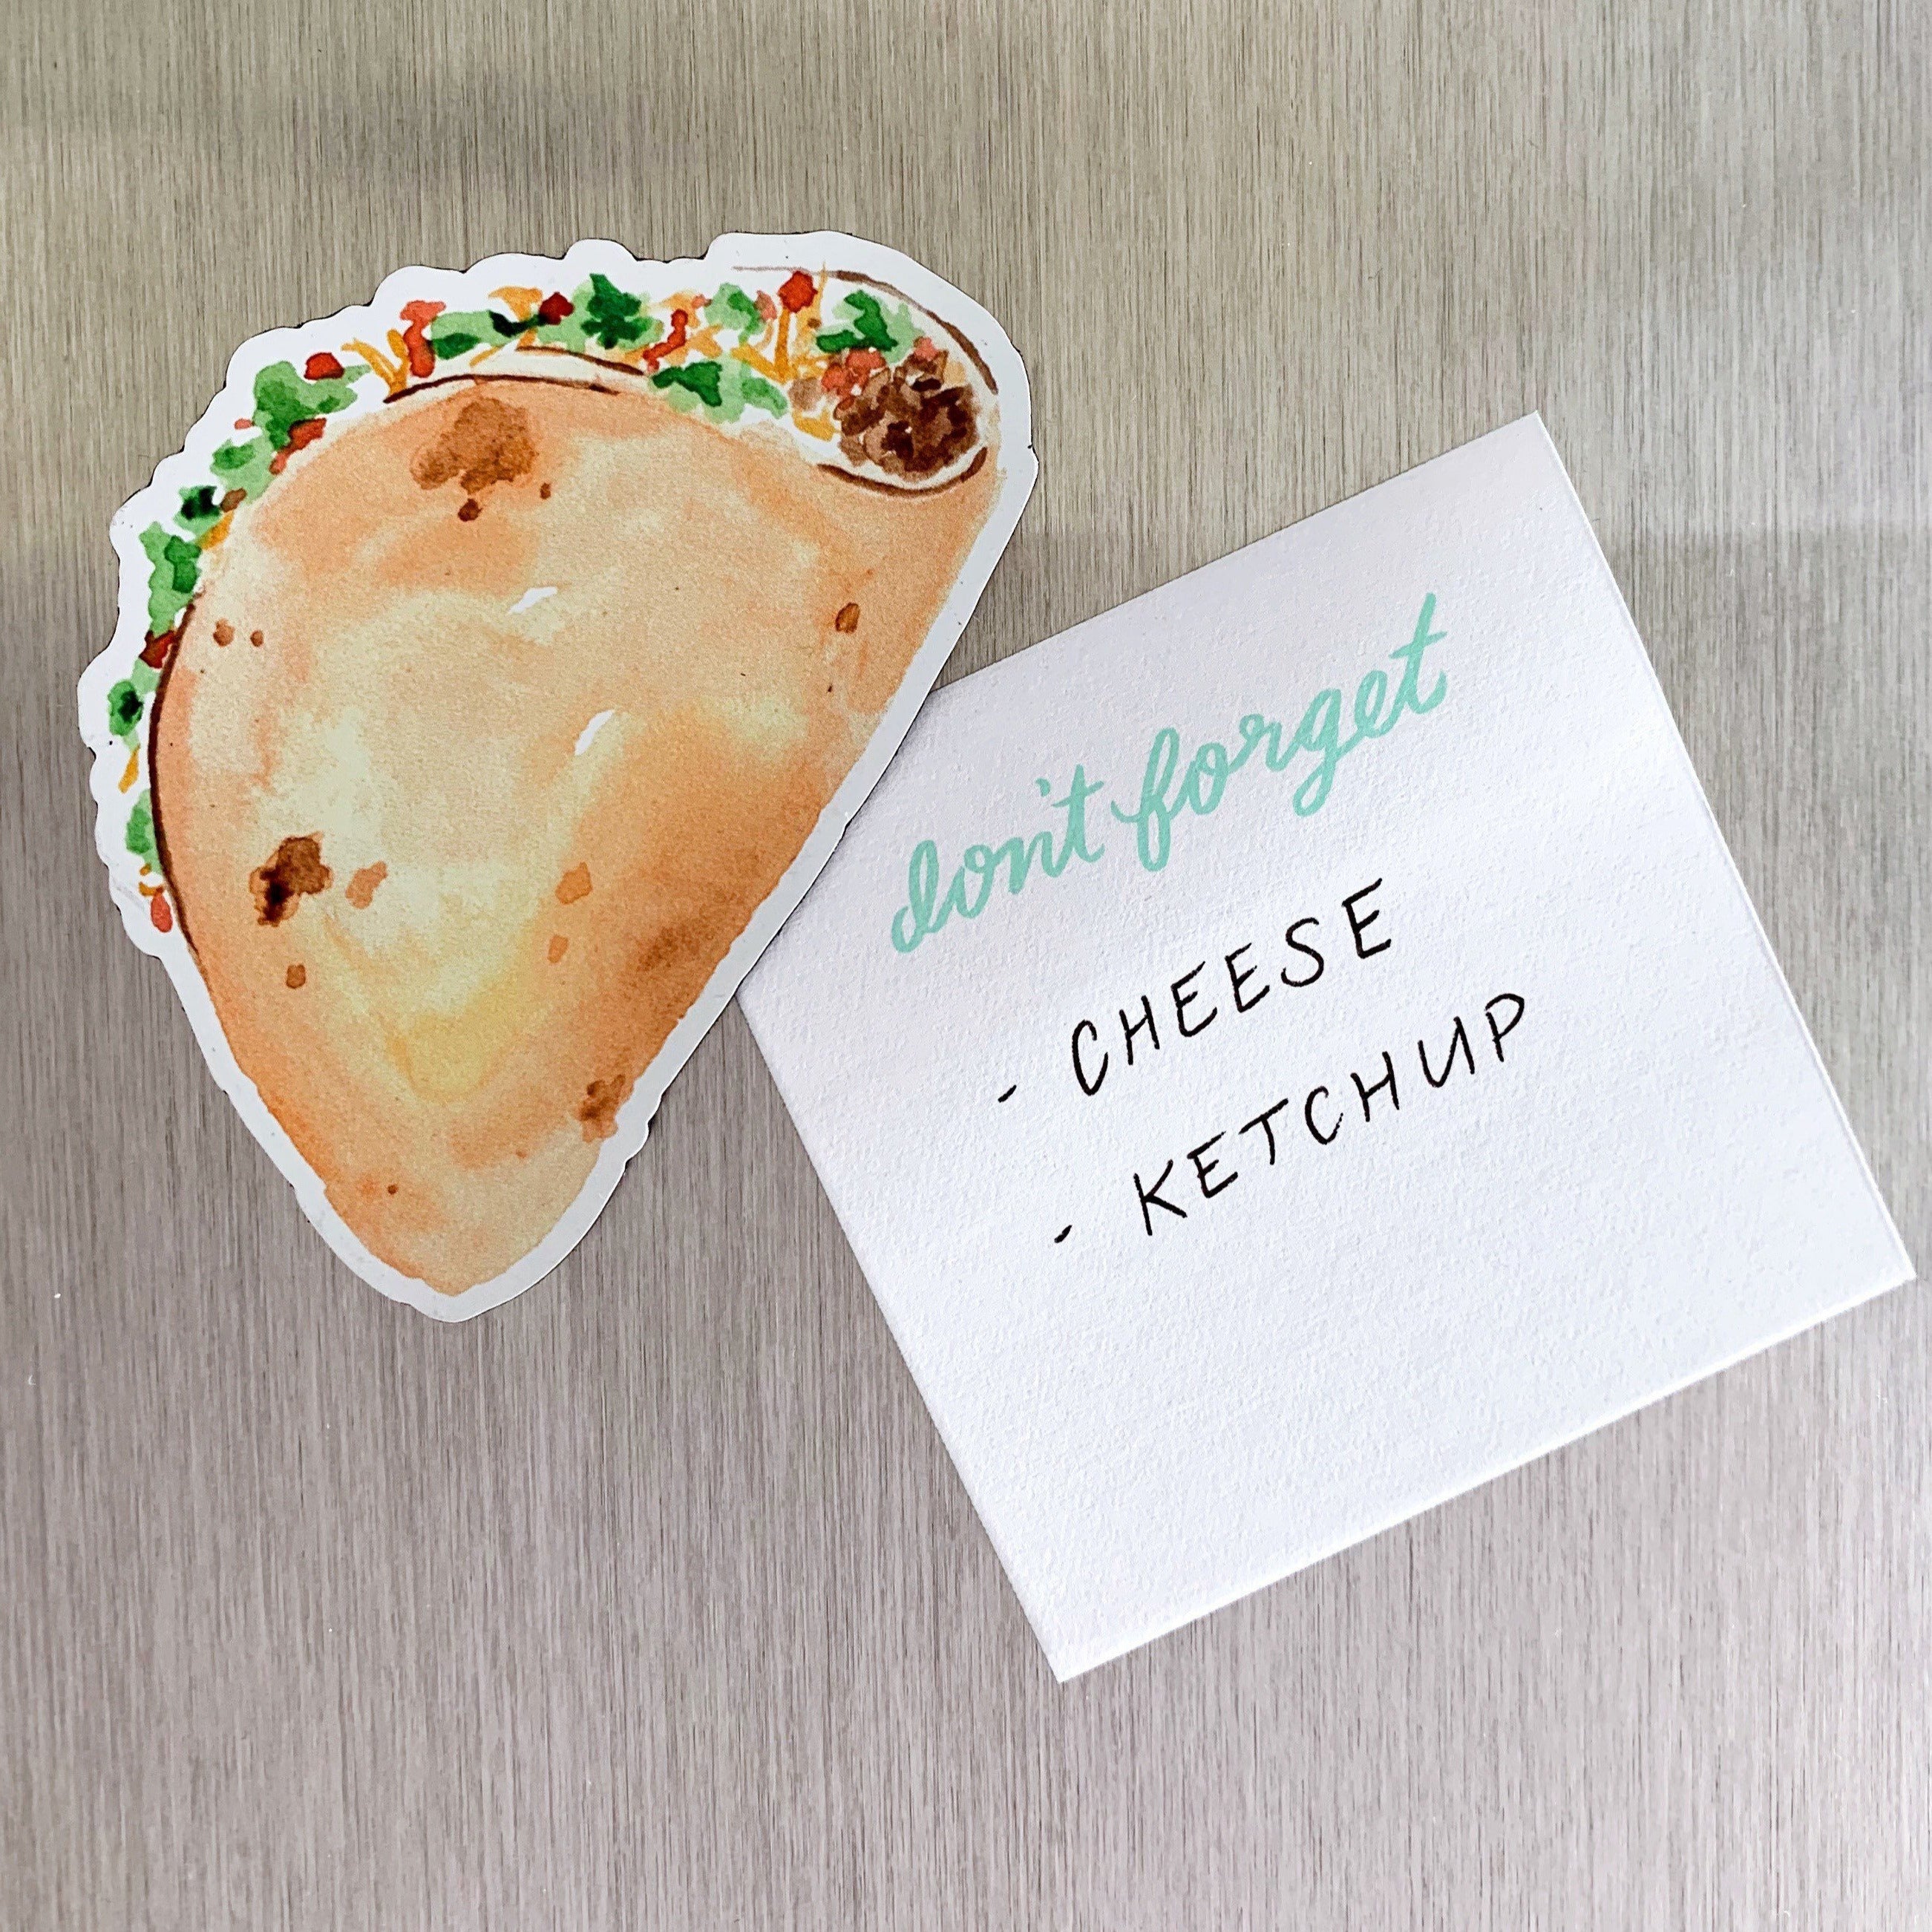 don't forget
- CHEESE
- KETCHUP